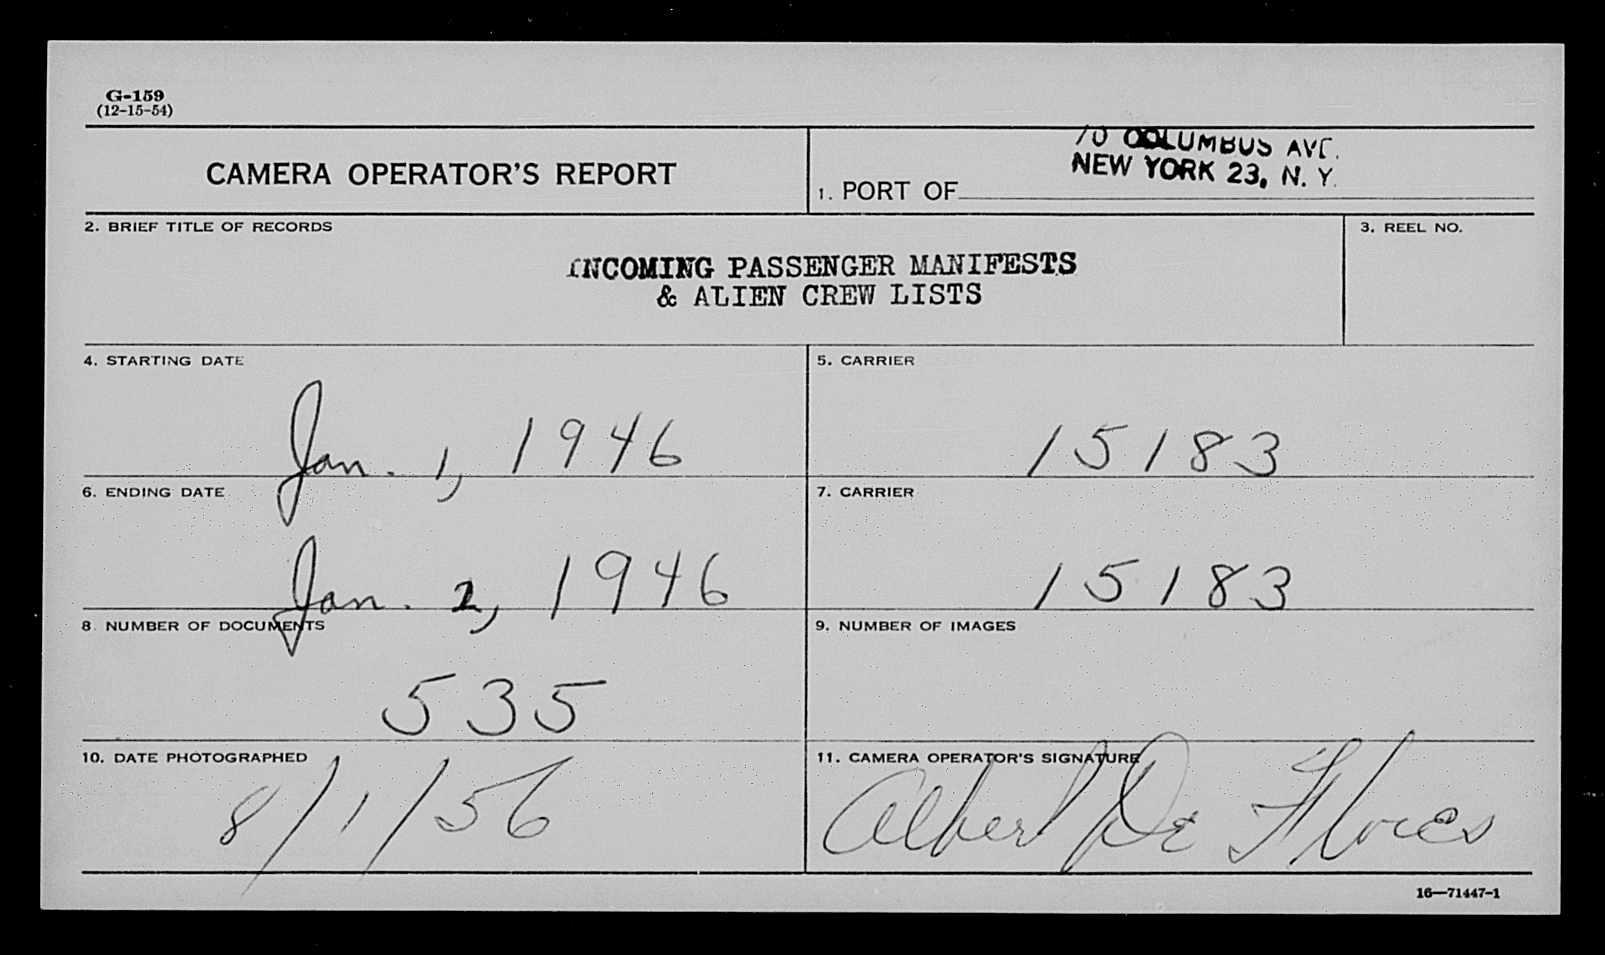 G-159
(12-15-54)
CAMERA OPERATOR'S REPORT
70 COLUMBUS AVE.
NEW YORK 23, N. Y.
1. PORT OF
2. BRIEF TITLE OF RECORDS
3. REEL NO.
INCOMING PASSENGER MANIFESTS
& ALIEN CREW LISTS
4. STARTING DATE
Jan. 1, 1946
5. CARRIER
15183
6. ENDING DATE
Jan. 2, 1946
7. CARRIER
15183
8. NUMBER OF DOCUMENTS
535
9. NUMBER OF IMAGES
10. DATE PHOTOGRAPHED
8/1/56
11. CAMERA OPERATOR'S SIGNATURE
Albert De Flores
16—71447-1